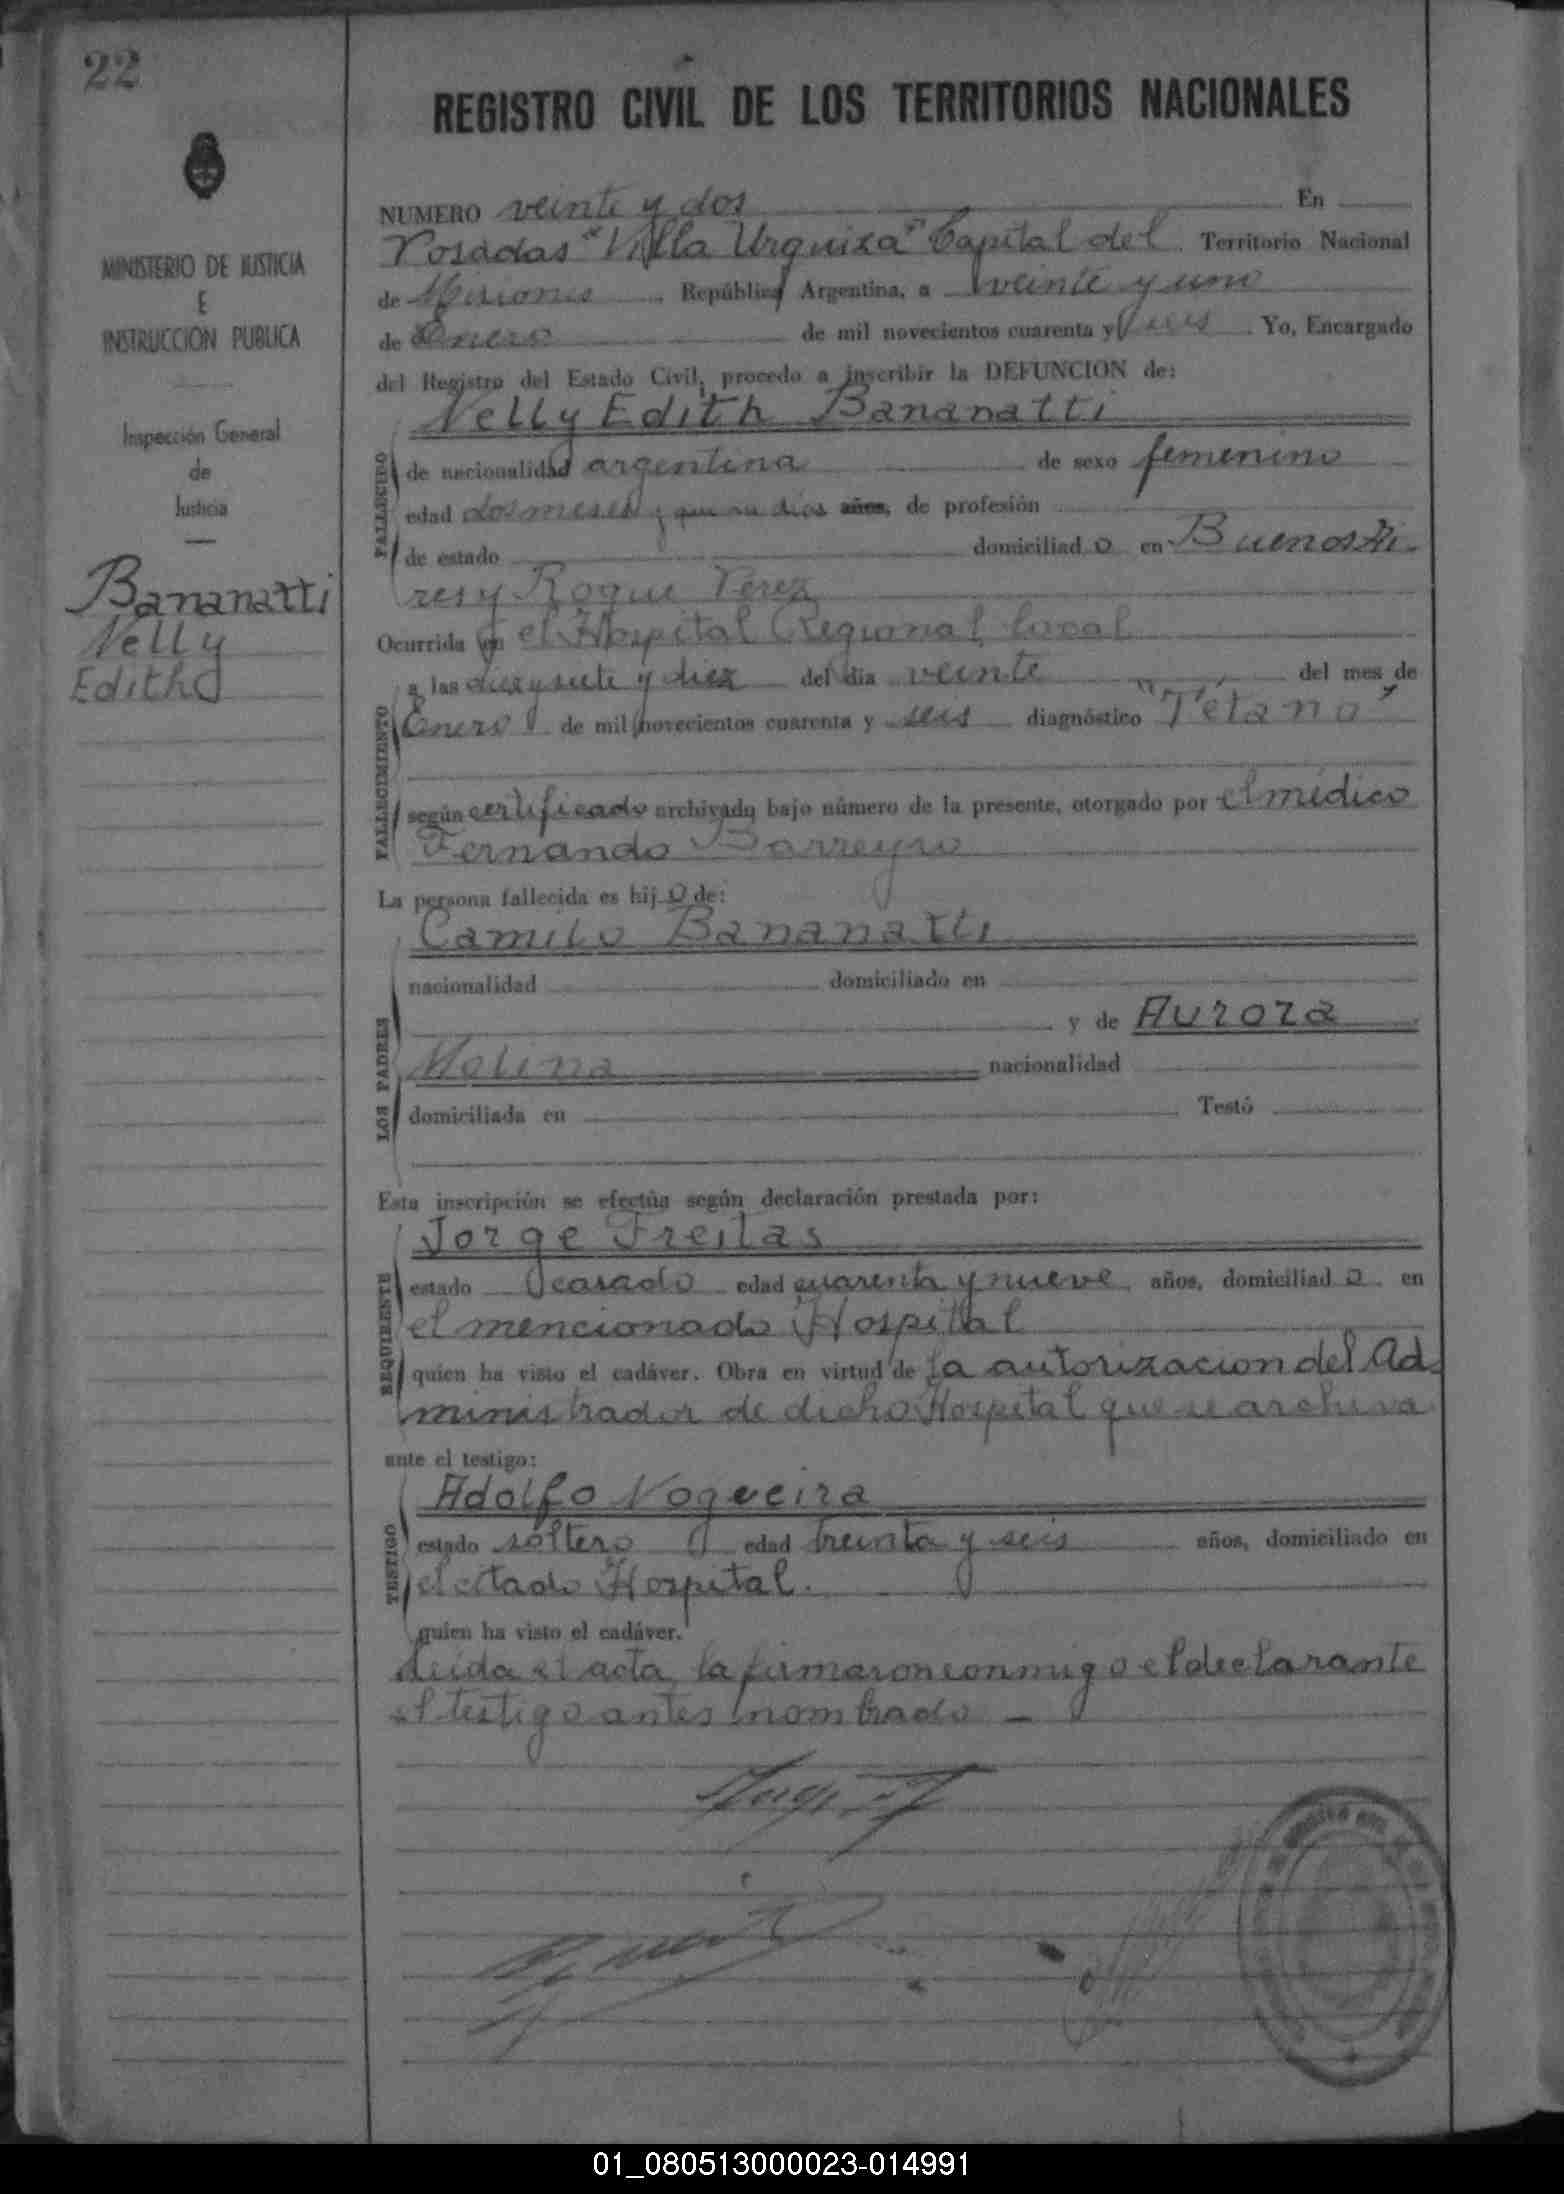 22
REGISTRO CIVIL DE LOS TERRITORIOS NACIONALES
MINISTERIO DE JUSTICIA
E
INSTRUCCION PUBLICA
Inspección General
de
Justicia
Bananatti
Nelly
Edith
NUMERO veinte y dos En
Posadas "Villa Urquiza" Capital del Territorio Nacional
de Misiones República Argentina, a veinte y uno
de Enero de mil novecientos cuarenta y seis . Yo, Encargado
del Registro del Estado Civil, procedo a inscribir la DEFUNCION de:
Nelly Edith Bananatti
FALLECIDO
de nacionalidad argentina de sexo femenino
edad dos meses y días años, de profesión
de estado domiciliad o en Buenos Ai-
res y Roque Perez
Ocurrida en el Hospital Regional local
a las diez y siete y diez del día veinte del mes de
FALLECIMIENTO
Enero de mil novecientos cuarenta y seis diagnóstico "Tétano"
según certificado archivado bajo número de la presente, otorgado por el médico
Fernando Barreyro
La persona fallecida es hij o de:
Camilo Bananatti
LOS PADRES
nacionalidad domiciliado en
y de Aurora
Molina nacionalidad
domiciliada en Testó
Esta inscripción se efectúa según declaración prestada por:
Jorge Freitas
REQUIRENTE
estado casado edad cuarenta y nueve años, domiciliad o en
el mencionado Hospital
quien ha visto el cadáver. Obra en virtud de la autorizacion del Ad
ministrador de dicho Hospital que se archiva
ante el testigo:
Adolfo Nogueira
TESTIGO
estado soltero edad treinta y seis años, domiciliado en
el citado Hospital.
quien ha visto el cadáver.
Leida el acta, la firmaron conmigo el declarante
el testigo antes nombrado —
01_080513000023-014991